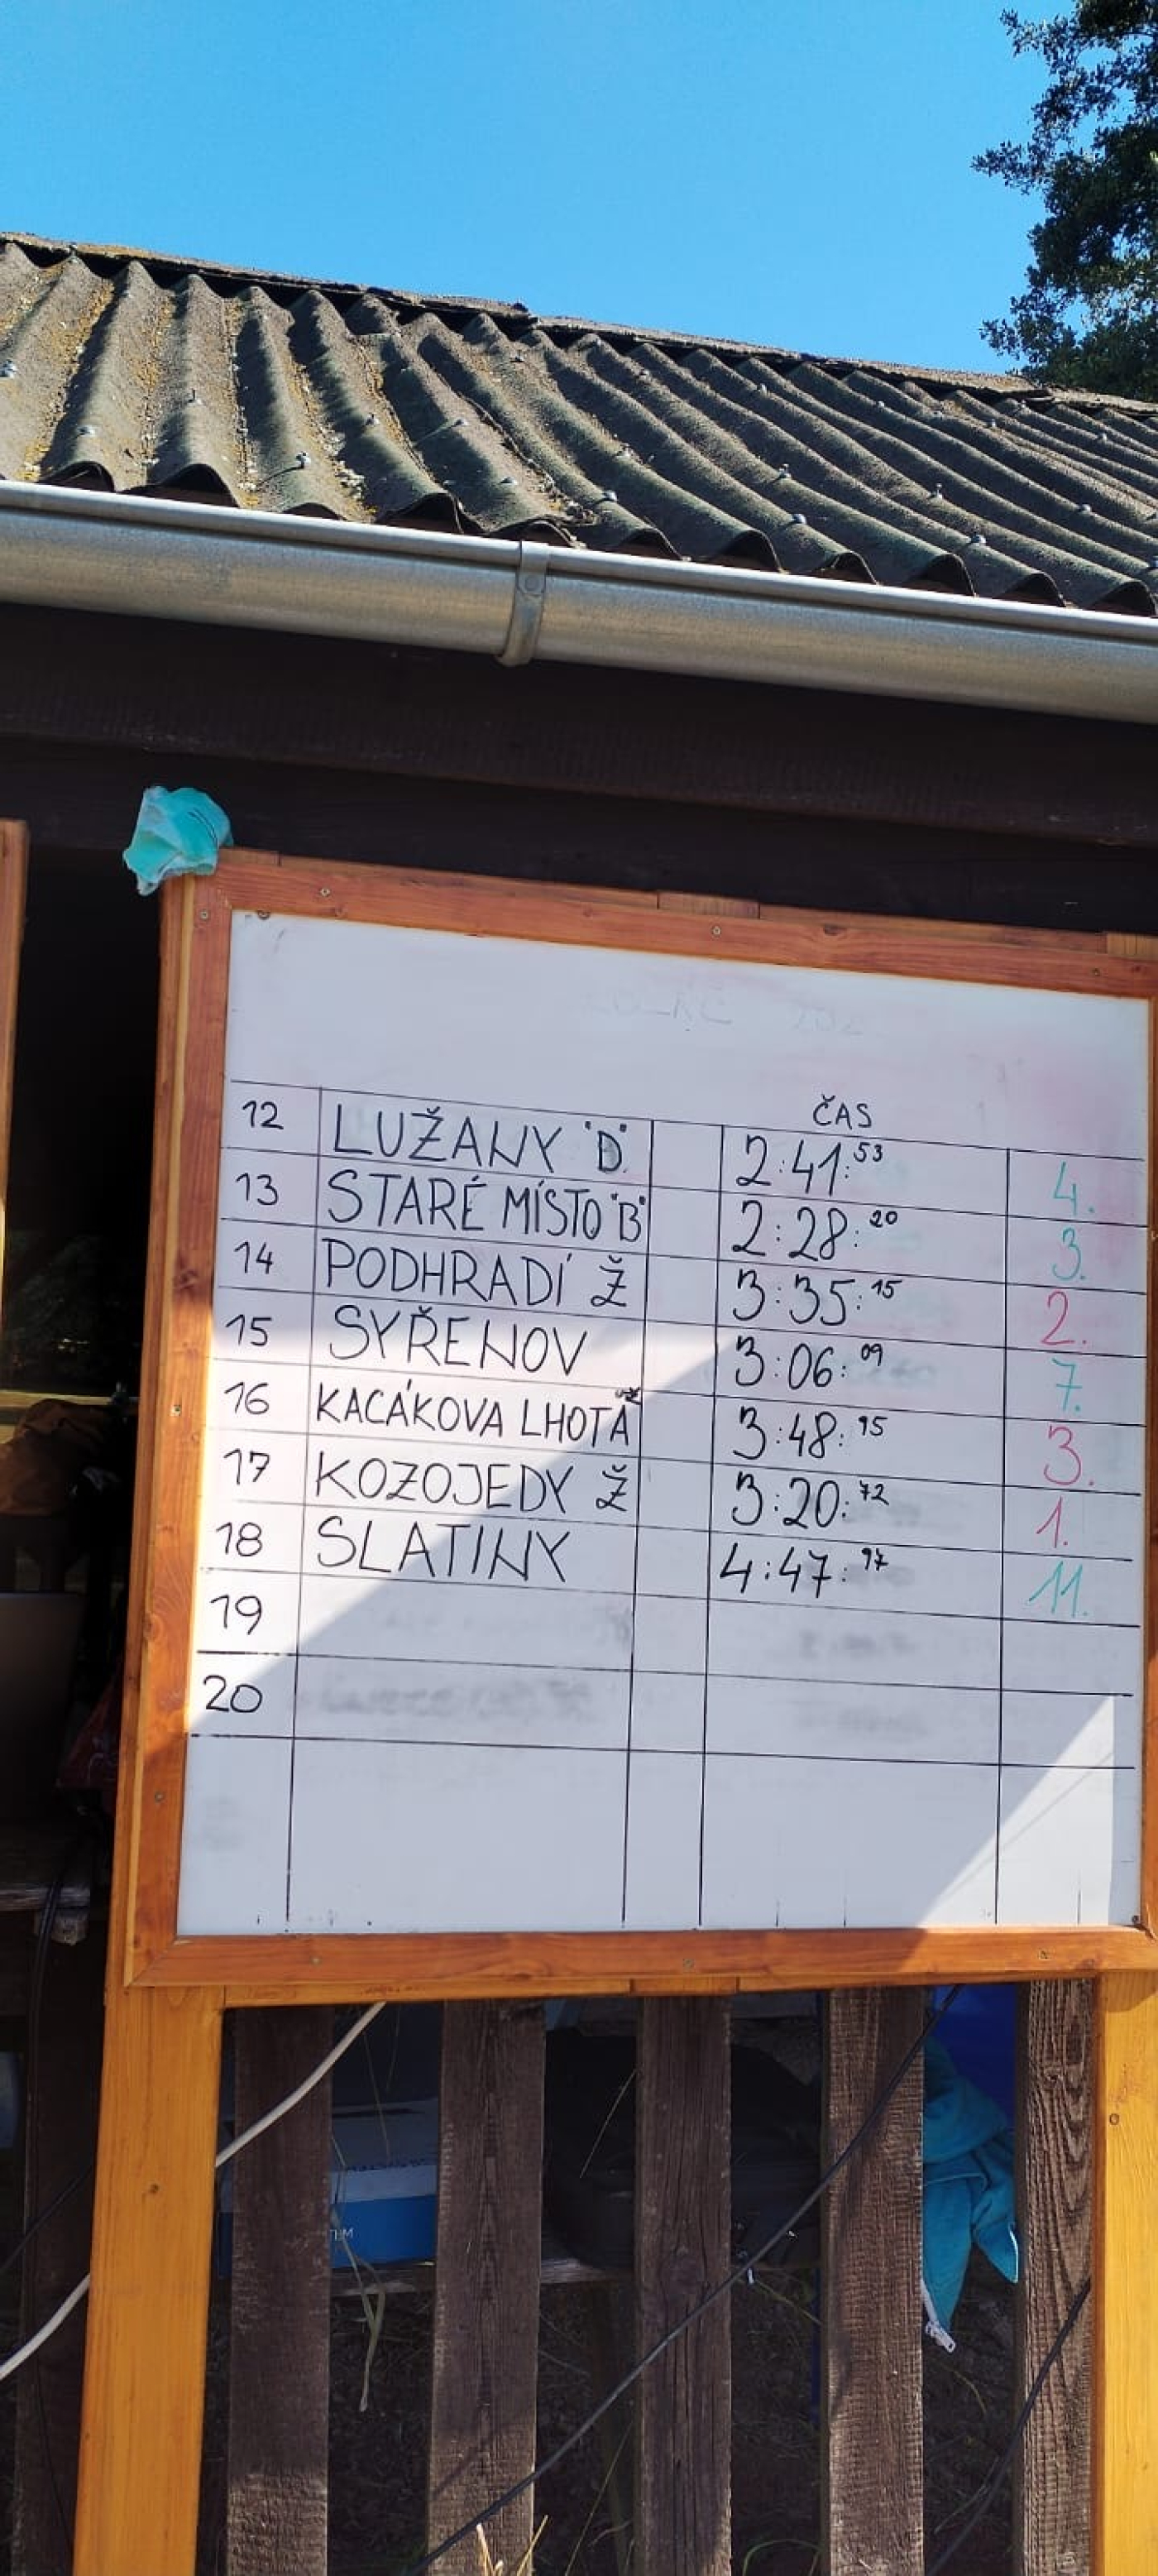 ČAS
12 LUŽANY "D" 2:41:53 4.
13 STARÉ MÍSTO "B" 2:28:20 3.
14 PODHRADÍ Ž 3:35:15 2.
15 SYŘENOV 3:06:09 7.
16 KACÁKOVA LHOTA 3:48:95 3.
17 KOZOJEDY Ž 3:20:72 1.
18 SLATINY 4:47:97 11.
19
20